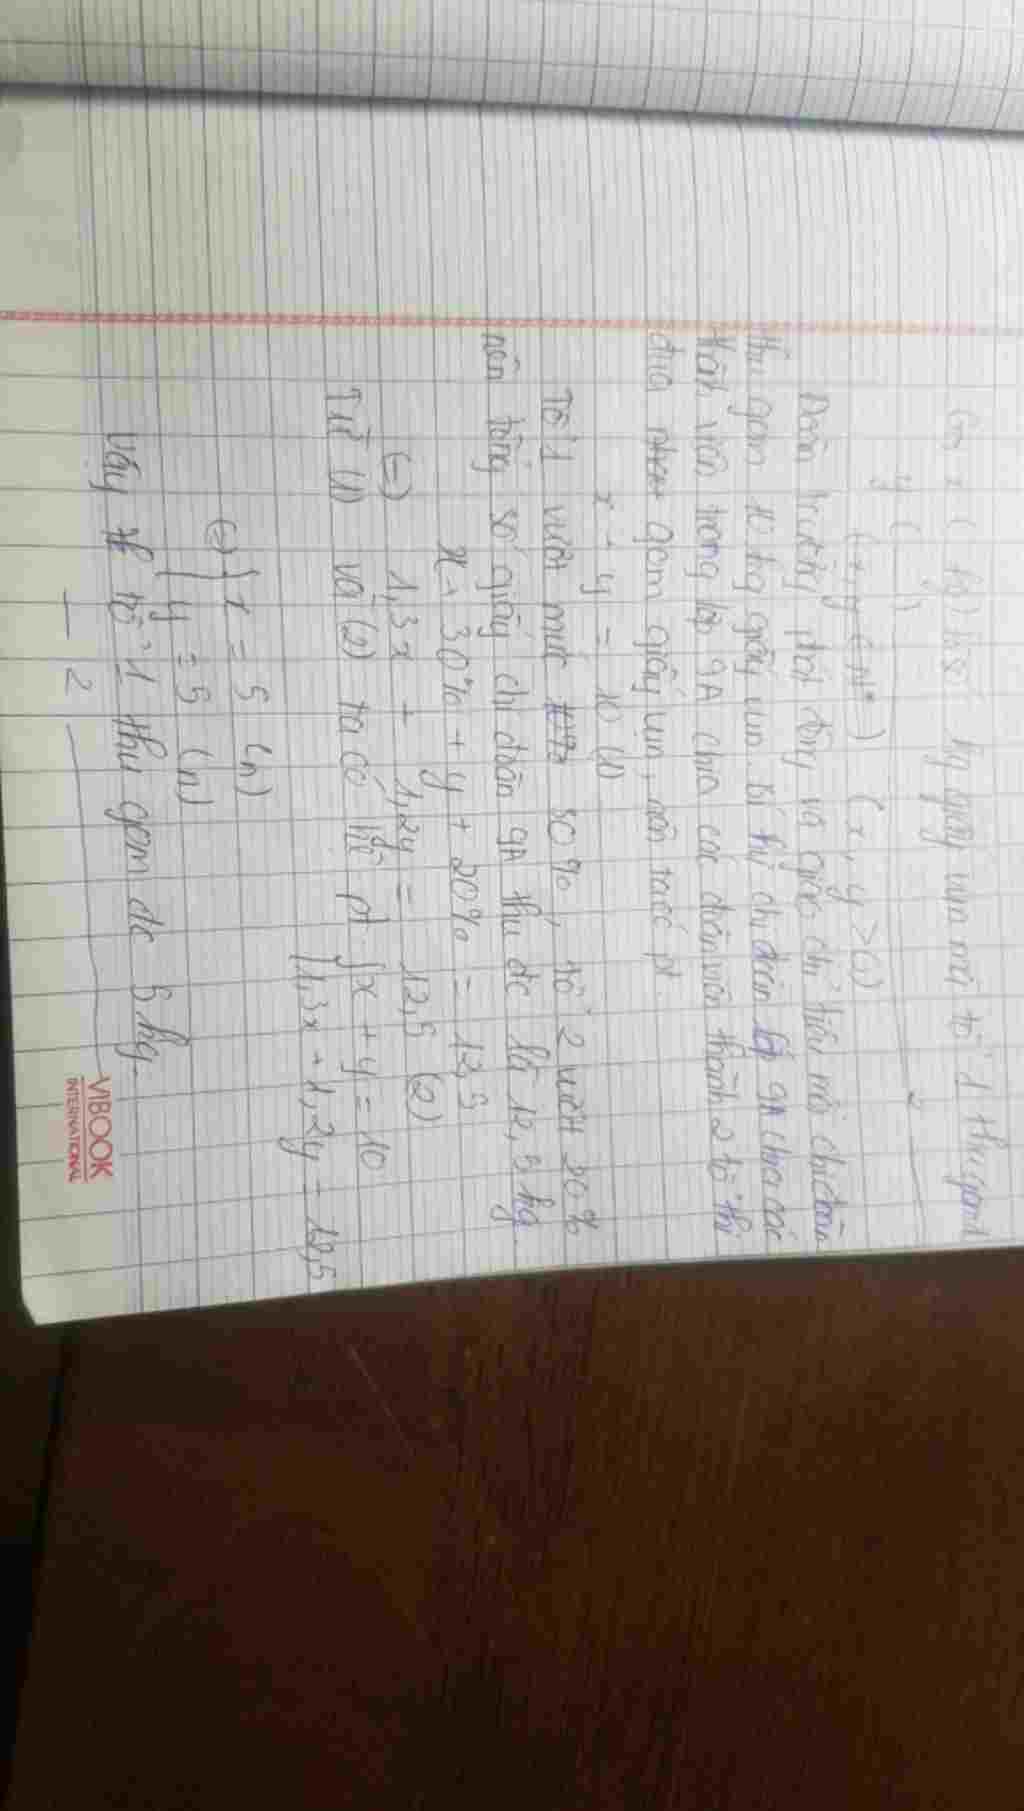 Gọi x ( kg) là số kg giấy vụn mà tổ 1 thu gom
y ( ) 2
(x, y ∈ N*) (x, y > 0)
Đoàn trường phát động và giao chỉ tiêu mỗi chi đoàn
thu gom 10 kg giấy vụn. Bí thư chi đoàn lớp 9A chia các
trong lớp 9A chia các đoàn viên thành 2 tổ thi
đua gom giấy vụn, nên ta có pt
x + y = 10 (1)
Tổ 1 vượt mức 30%, tổ 2 vượt 20%
nên tổng số giấy chi đoàn 9A thu đc là 12,5 kg.
x + 30% + y + 20% = 12,5
(=) 1,3x + 1,2y = 12,5 (2)
Từ (1) và (2) ta có hệ pt {x + y = 10
{1,3x + 1,2y = 12,5
(=) {x = 5 (n)
{y = 5 (n)
Vậy tổ 1 thu gom đc 5 kg.
— 2 —
VIBOOK
INTERNATIONAL